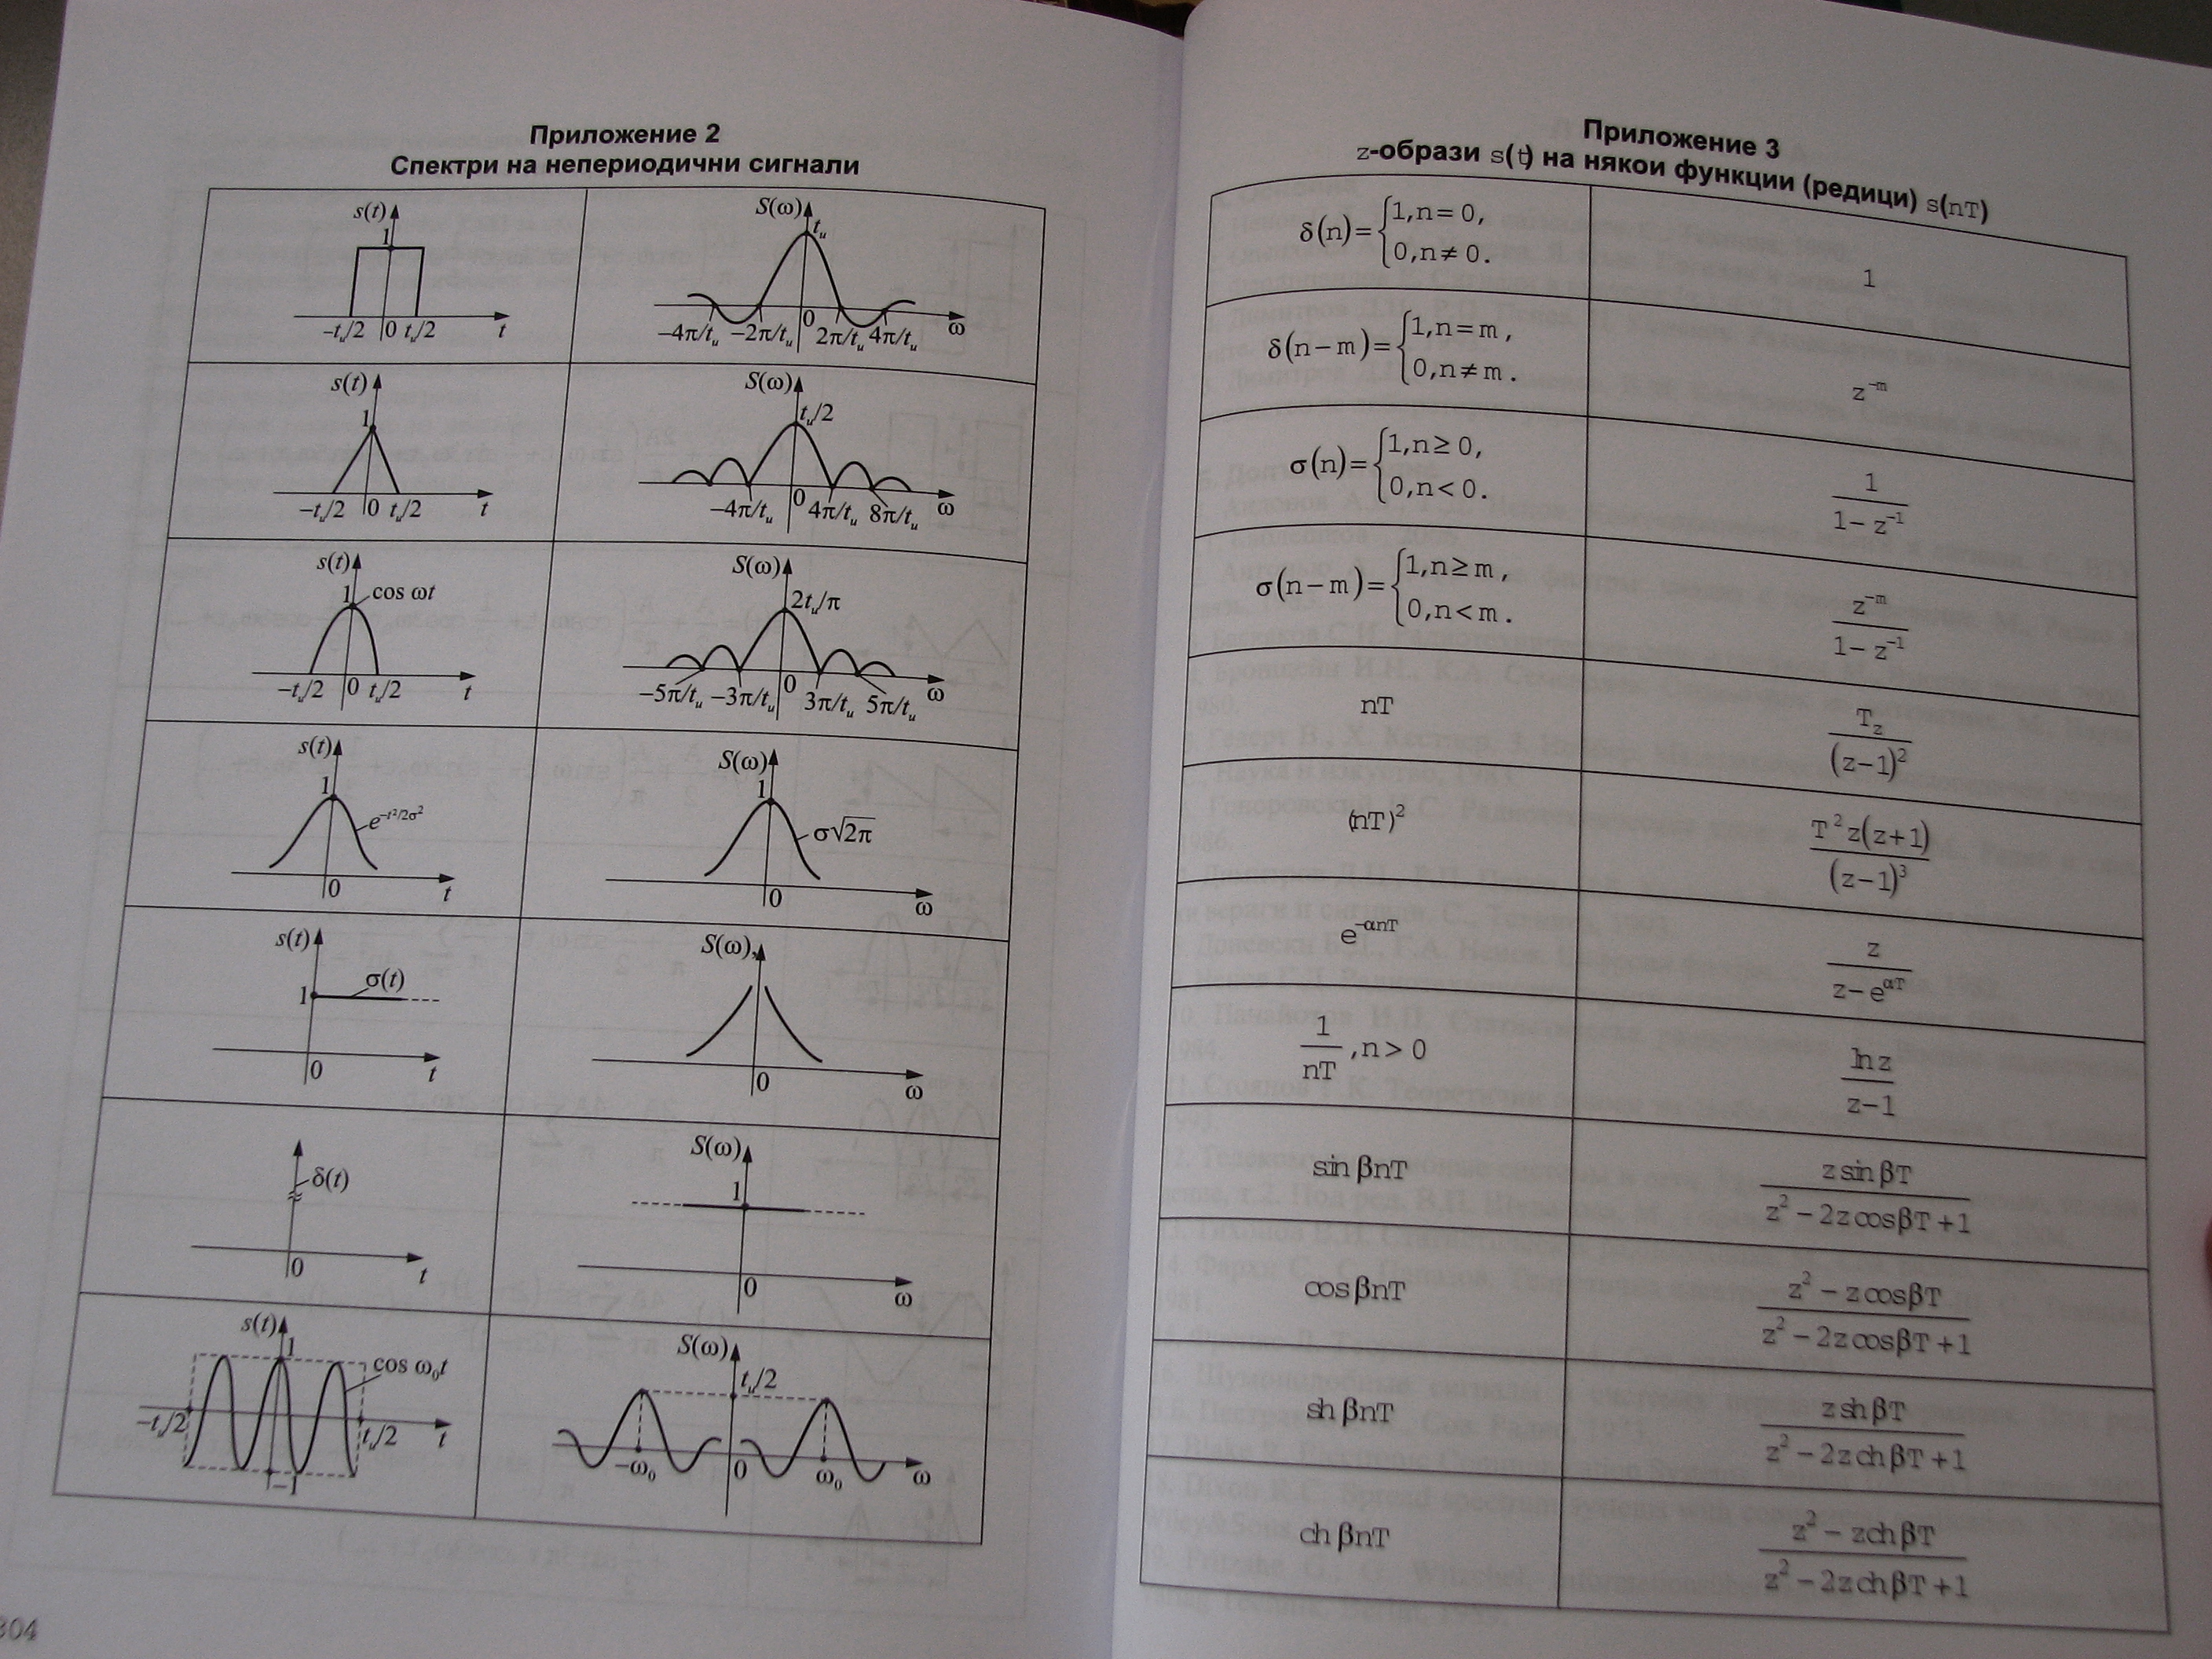 Приложение 2
Спектри на непериодични сигнали
s(t) 1 −tᵤ/2 0 tᵤ/2 t
S(ω) tᵤ −4π/tᵤ −2π/tᵤ 0 2π/tᵤ 4π/tᵤ ω
s(t) 1 −tᵤ/2 0 tᵤ/2 t
S(ω) tᵤ/2 −4π/tᵤ 0 4π/tᵤ 8π/tᵤ ω
s(t) 1 cos ωt −tᵤ/2 0 tᵤ/2 t
S(ω) 2tᵤ/π −5π/tᵤ −3π/tᵤ 0 3π/tᵤ 5π/tᵤ ω
s(t) 1 e^(−t²/2σ²) 0 t
S(ω) 1 σ√2π 0 ω
s(t) 1 σ(t) 0 t
S(ω) 0 ω
δ(t) 0 t
S(ω) 1 0 ω
s(t) 1 cos ω₀t −tᵤ/2 tᵤ/2 t −1
S(ω) tᵤ/2 −ω₀ 0 ω₀ ω
304
Приложение 3
z-образи s(t) на някои функции (редици) s(nT)
δ(n)= {1,n=0, 0,n≠0. 1
δ(n−m)= {1,n=m, 0,n≠m. z^(−m)
σ(n)= {1,n≥0, 0,n<0. 1/(1−z^(−1))
σ(n−m)= {1,n≥m, 0,n<m. z^(−m)/(1−z^(−1))
nT Tz/(z−1)²
(nT)² T²z(z+1)/(z−1)³
e^(−αnT) z/(z−e^(αT))
1/nT ,n>0 ln z/(z−1)
sin βnT z sin βT/(z²−2z cos βT+1)
cos βnT (z²−z cos βT)/(z²−2z cos βT+1)
sh βnT z sh βT/(z²−2z ch βT+1)
ch βnT (z²−z ch βT)/(z²−2z ch βT+1)